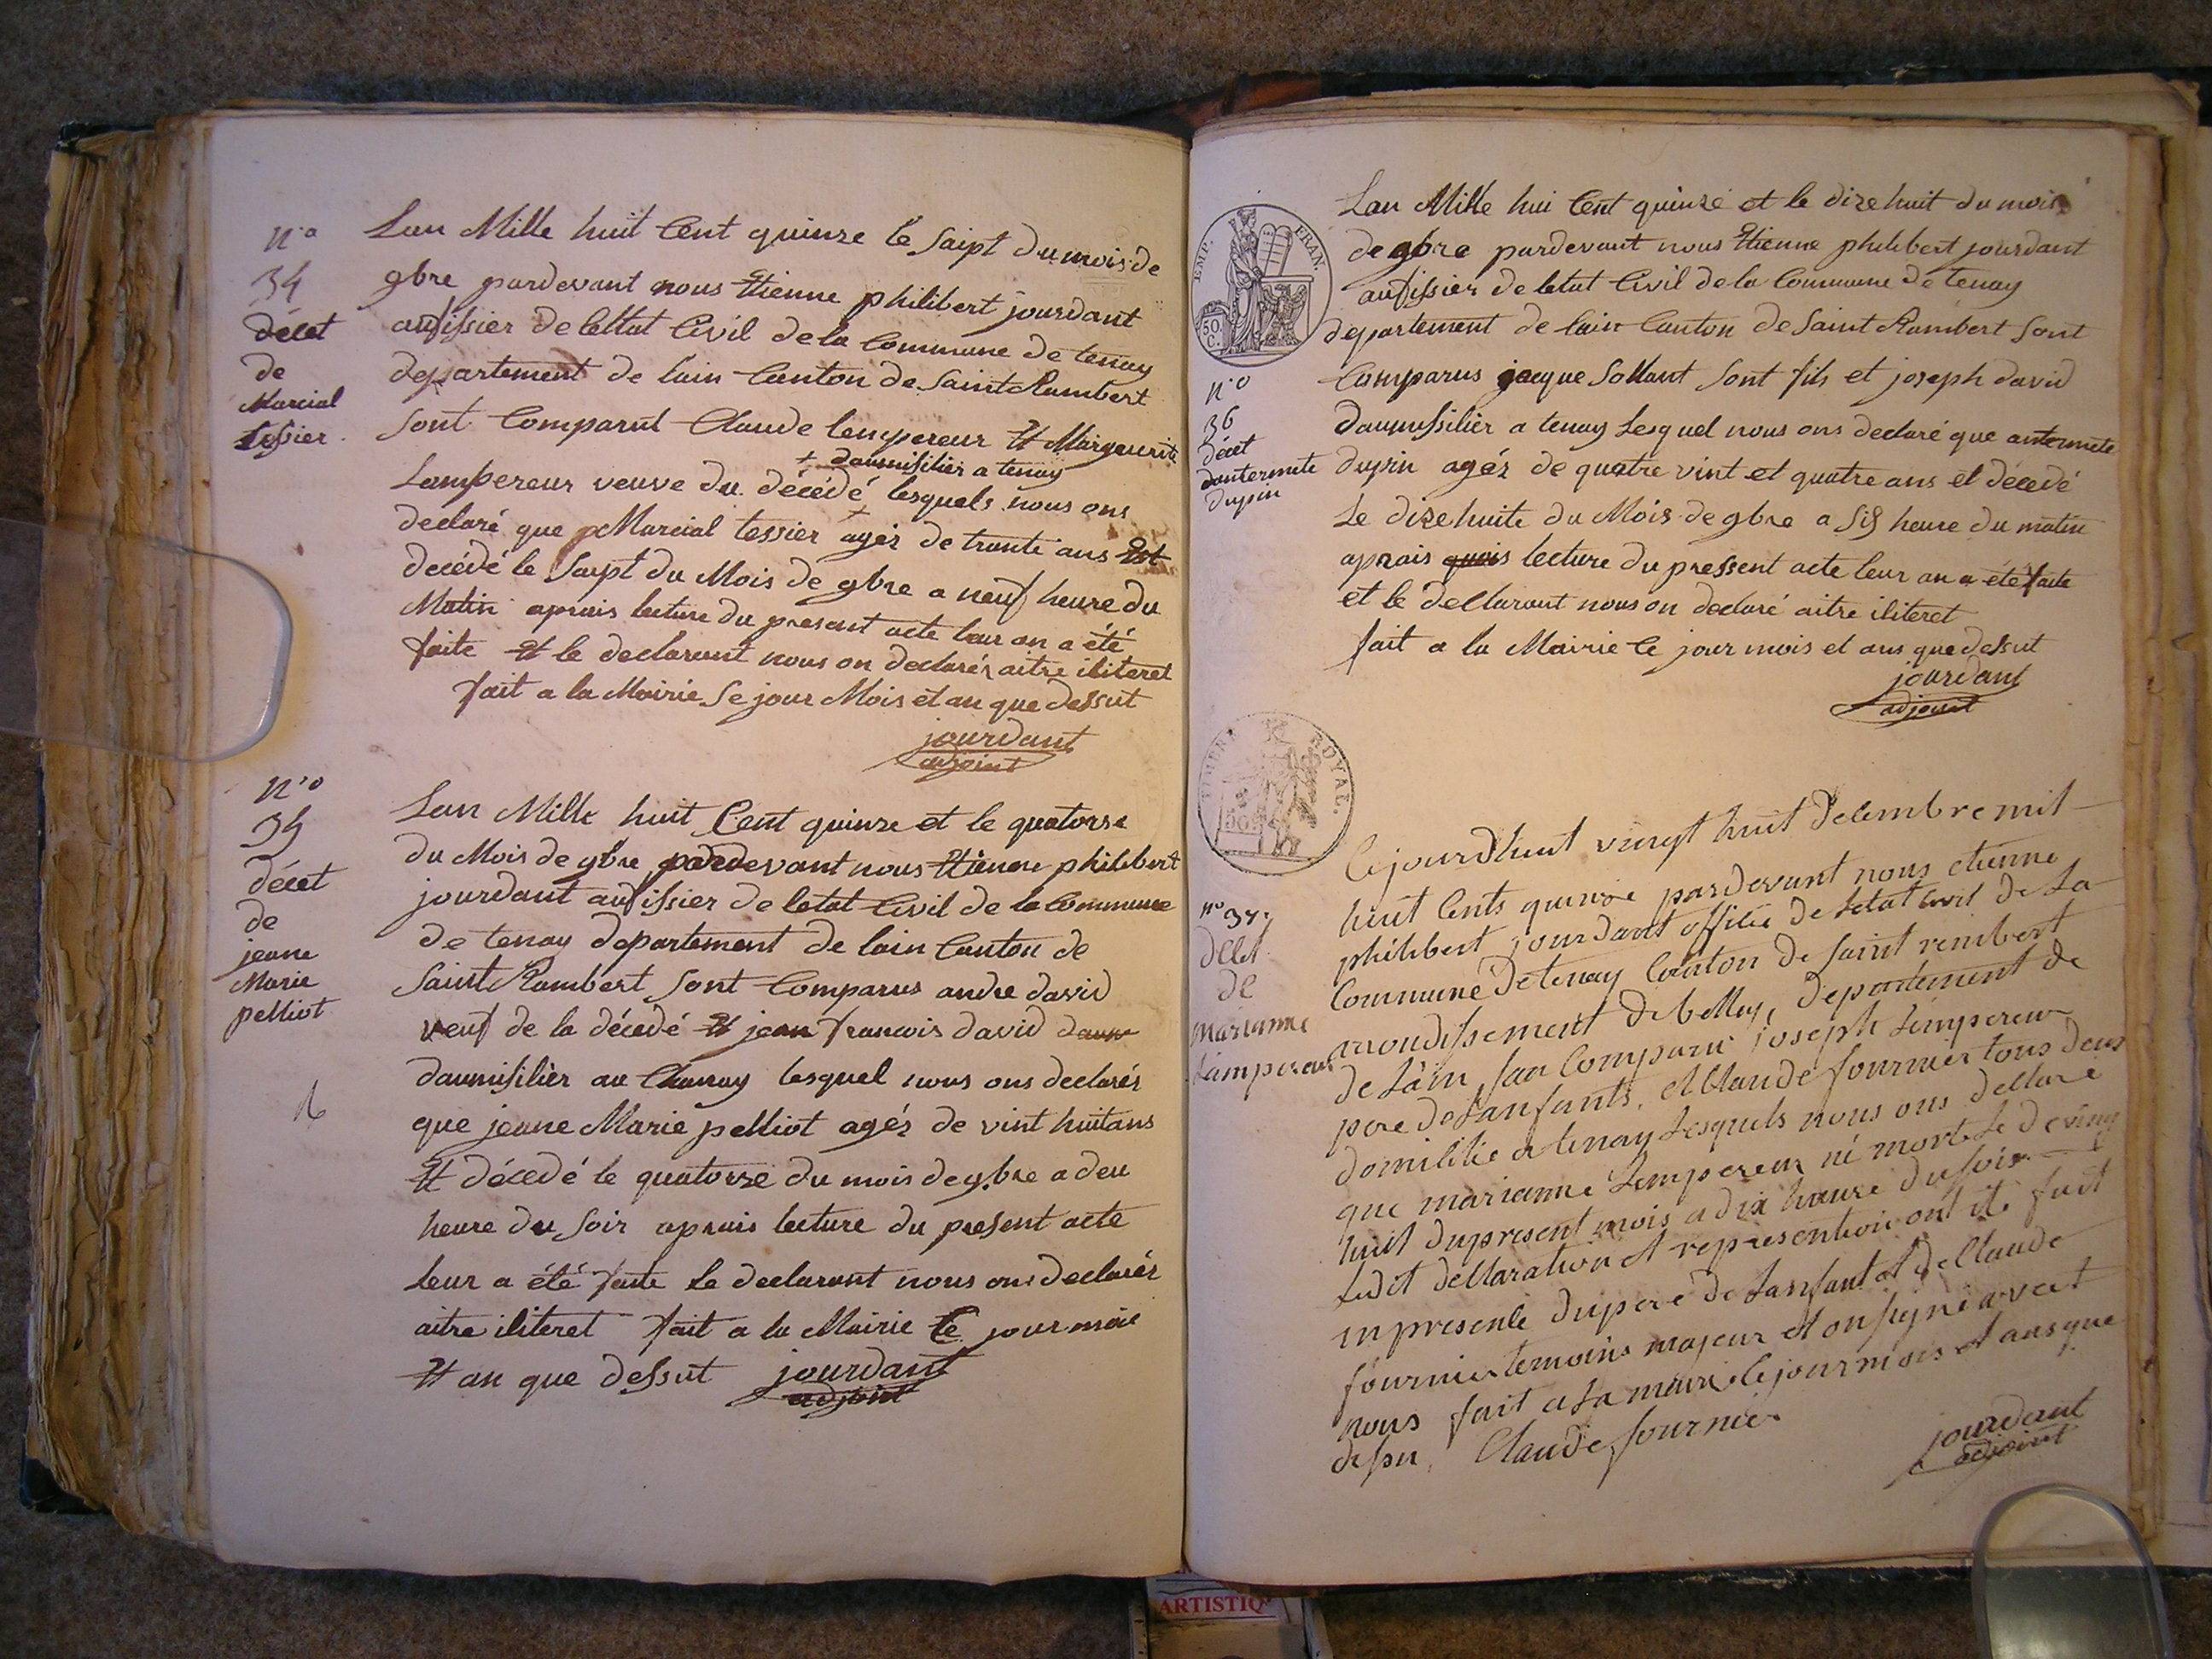 n.o
34
décet
de
Marcial
tessier
Lan Mille huit Cent quinze le Saipt du mois de
9bre pardevant nous Etienne philibert jourdant
aufissier de lettat Civil de la Commune de tenay
departement de lain Canton de Saint Rambert
Sont Comparut Claude lempereur Et Margeurite
+ daumisilier a tenay
Lampereur veuve du décédé lesquels nous ons
declaré que Marcial tessier agés de trante ans Est
decédé le Saipt du Mois de 9bre a neuf heure du
Matin aprais lecture du present acte leur an a été
faite Et le declarant nous on declarés aitre iliteret
fait a la Mairie Le jour Mois et an que dessut
jourdant
adjoint
n.o
35
décet
de
jeane
Marie
pelliot
Lan Mille huit Cent quinze et le quatorse
du Mois de 9bre pardevant nous Etienne philibert
jourdant aufissier de letat Civil de la Commune
de tenay departement de lain Canton de
Saint Rambert Sont Comparus andre david
veuf de la décedé Et jean francois david
daumisilier au Chanay lesquel nous ons declarés
que jeane Marie pelliot agés de vint huit ans
Et décedé le quatorze du mois de 9bre a deu
heure du Soir aprais lecture du present acte
leur a été faite le declarant nous ons declarés
aitre iliteret fait a la Mairie Le jour mois
Et an que dessut jourdant
adjoint
EMP. FRAN.
50 C.
n.o
36
décet
dantermete
dupin
Lan Mille hui Cent quinze et le dize huit du mois
de 9bre pardevant nous Etienne philibert jourdant
aufissier de letat Civil de la Commune de tenay
departement de lain Canton de Saint Rambert Sont
Comparus jacque Sollant Sont fils et joseph david
daumissilier a tenay Lesquel nous ons declaré que antermete
dupin agéz de quatre vint et quatre ans et décedé
Le dize huite du Mois de 9bre a Sis heure du matin
aprais quois lecture du pressent acte leur an a été faite
et le declarant nous on declaré aitre iliteret
fait a la Mairie Le jour mois et ans que dessut
jourdant
adjoint
ROYAL.
50
n.o 37
decet
de
marianne
Lampereur
Cejourdhuit vingt huit decembre mil
huit Cents quinze pardevant nous etienne
philibert jourdant officie de Letat Civil de La
Commune de tenay Canton de Saint rembert
arrondissement de belley, departement de
de Lain Son Comparu joseph Lempereur
pere de Lanfants, et Claude fournier tous deus
domicilie a tenay Lesquels nous ons declaré
que marianne Lempereur né morte Le de ving
huit dupresent mois a dix heure du Soir
Ledit declaration et representtion ont ete fait
en presente du pere de Lanfant et de Claude
fournier temoins majeur et on Signé avect
nous fait a La mairi le jour mois et ans que
desu, Claude fournier
jourdant
adjoint
ARTISTIQ